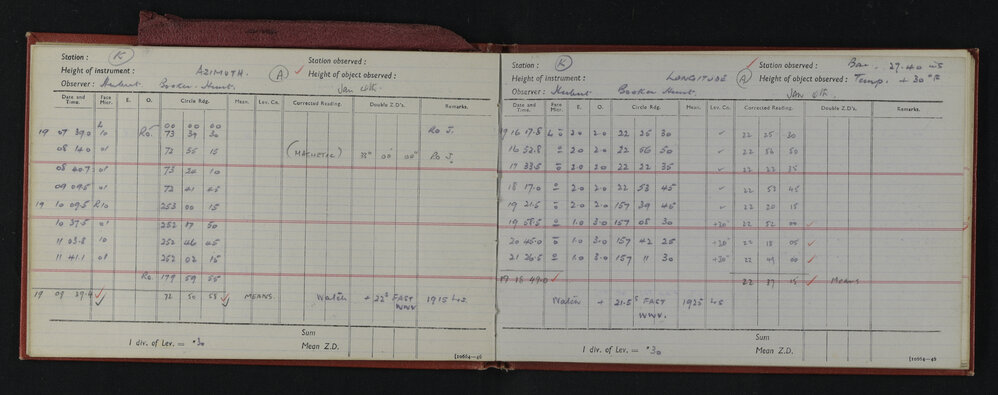 Station : K Station observed :
Height of instrument : AZIMUTH. A Height of object observed :
Observer : Herbert Booker-Hunt. Jan
Date and Time. Face Micr. E. O. Circle Rdg. Mean. Lev. Co. Corrected Reading. Double Z.D's. Remarks.
00 00 00
19 07 39.0 L 10 Ro. 73 39 30 Ro J.
08 14.0 01 72 55 15 (MAGNETIC) 33° 00' 00" Ro J.
08 40.7 01 73 24 10
09 09.5 01 72 41 45
19 10 09.5 R 10 253 00 15
10 37.5 01 252 17 50
11 03.8 10 252 46 45
11 41.1 01 252 02 15
Ro. 179 59 55
19 09 39.4 72 50 58 MEANS. Watch + 22s FAST 1915 Ls
WWV
Sum
1 div. of Lev. = .30 Mean Z.D.
Station : K Station observed : Bar. 27.40 ins
Height of instrument : LONGITUDE A Height of object observed : Temp. +30°F
Observer : Herbert Booker Hunt. JAN
Date and Time. Face Micr. E. O. Circle Rdg. Mean. Lev. Co. Corrected Reading. Double Z.D's. Remarks.
19 16 17.8 L 2.0 2.0 22 25 30 22 25 30
16 52.8 2.0 2.0 22 56 50 22 56 50
17 33.5 2.0 2.0 22 22 35 22 22 35
18 17.0 2.0 2.0 22 53 45 22 53 45
19 21.5 2.0 2.0 157 39 45 22 20 15
19 58.5 1.0 3.0 157 08 30 +30" 22 52 00
20 45.0 1.0 3.0 157 42 25 +30" 22 18 05
21 26.5 1.0 3.0 157 11 30 +30" 22 49 00
19 18 49.0 22 37 15 Means
Watch + 21.5s FAST 1925 Ls
WWV.
Sum
1 div. of Lev. = .30 Mean Z.D.